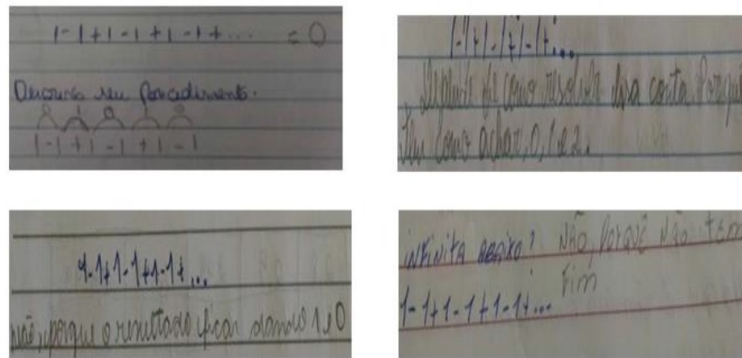 1-1+1-1+1-1+... = 0
Descreva seu procedimento.
0 0 0
1-1+1-1+1-1
1-1+1-1+1-1+...
Depende de como resolver essa conta Porque
tem como achar, 0, 1 e 2.
1-1+1-1+1-1+...
não, porque o resultado ficar dando 1 e 0
infinita abaixo? NÃO, PORQUÊ NÃO tem
Fim
1-1+1-1+1-1+...